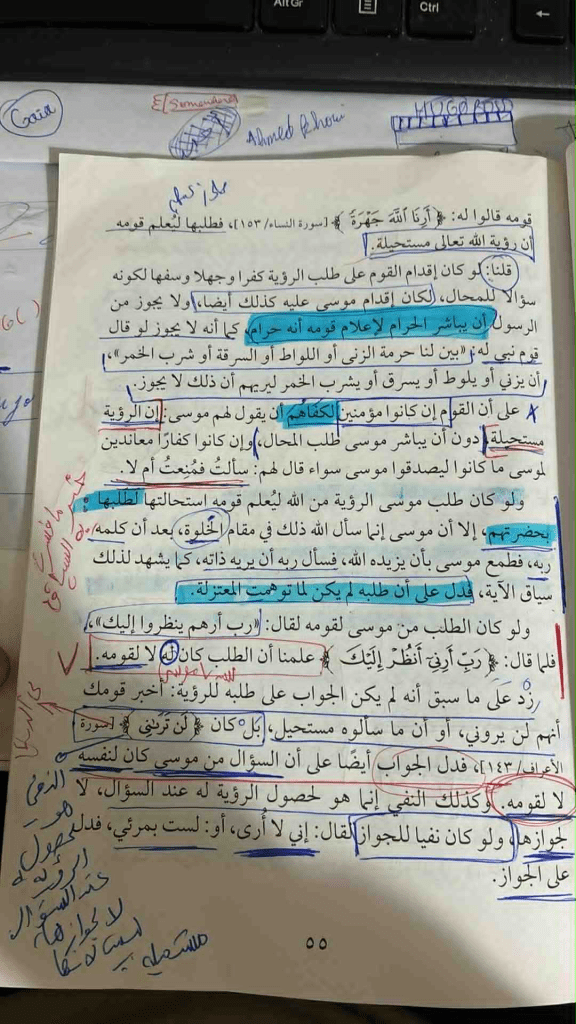 Alt Gr
Ctrl
←
Gaia
Somewhere
HUGO BOSS
Ahmed
قومه قالوا له: ﴿أَرِنَا ٱللَّهَ جَهْرَةً﴾ [سورة النساء/١٥٣]، فطلبها ليُعلم قومه
أن رؤية الله تعالى مستحيلة.
قلنا: لو كان إقدام القوم على طلب الرؤية كفرا وجهلا وسفها لكونه
سؤالا للمحال، لكان إقدام موسى عليه كذلك أيضا، ولا يجوز من
الرسول أن يباشر الحرام لإعلام قومه أنه حرام، كما أنه لا يجوز لو قال
قوم نبي له: «بين لنا حرمة الزنى أو اللواط أو السرقة أو شرب الخمر»،
أن يزني أو يلوط أو يسرق أو يشرب الخمر ليريهم أن ذلك لا يجوز.
على أن القوم إن كانوا مؤمنين لكفاهُم أن يقول لهم موسى: إن الرؤية
مستحيلة، دون أن يباشر موسى طلب المحال، وإن كانوا كفارًا معاندين
لموسى ما كانوا ليصدقوا موسى سواء قال لهم: سألتُ فمُنِعتُ أم لا.
ولو كان طلب موسى الرؤية من الله ليُعلم قومه استحالتها لطلبها
بحضرتهم، إلا أن موسى إنما سأل الله ذلك في مقام الخلوة، بعد أن كلمه
ربه، فطمع موسى بأن يزيده الله، فسأل ربه أن يريه ذاته، كما يشهد لذلك
سياق الآية، فدل على أن طلبه لم يكن لما توهمت المعتزلة.
ولو كان الطلب من موسى لقومه لقال: «رب أرهم ينظروا إليك»،
فلما قال: ﴿رَبِّ أَرِنِىٓ أَنظُرْ إِلَيْكَ﴾ علمنا أن الطلب كان له لا لقومه.
زِدْ عَلَى ما سبق أنه لم يكن الجواب على طلبه للرؤية: أخبر قومك
أنهم لن يروني، أو أن ما سألوه مستحيل، بل كان ﴿لَن تَرَىٰنِى﴾ [سورة
الأعراف/١٤٣]، فدل الجواب أيضًا على أن السؤال من موسى كان لنفسه
لا لقومه. وكذلك النفي إنما هو لحصول الرؤية له عند السؤال، لا
لجوازها، ولو كان نفيا للجواز لقال: إني لا أُرى، أو: لست بمرئي، فدل
على الجواز.
النفي
هو
لحصول
الرؤية له
عند السؤال
لا لجوازها
مستحيلة
٥٥